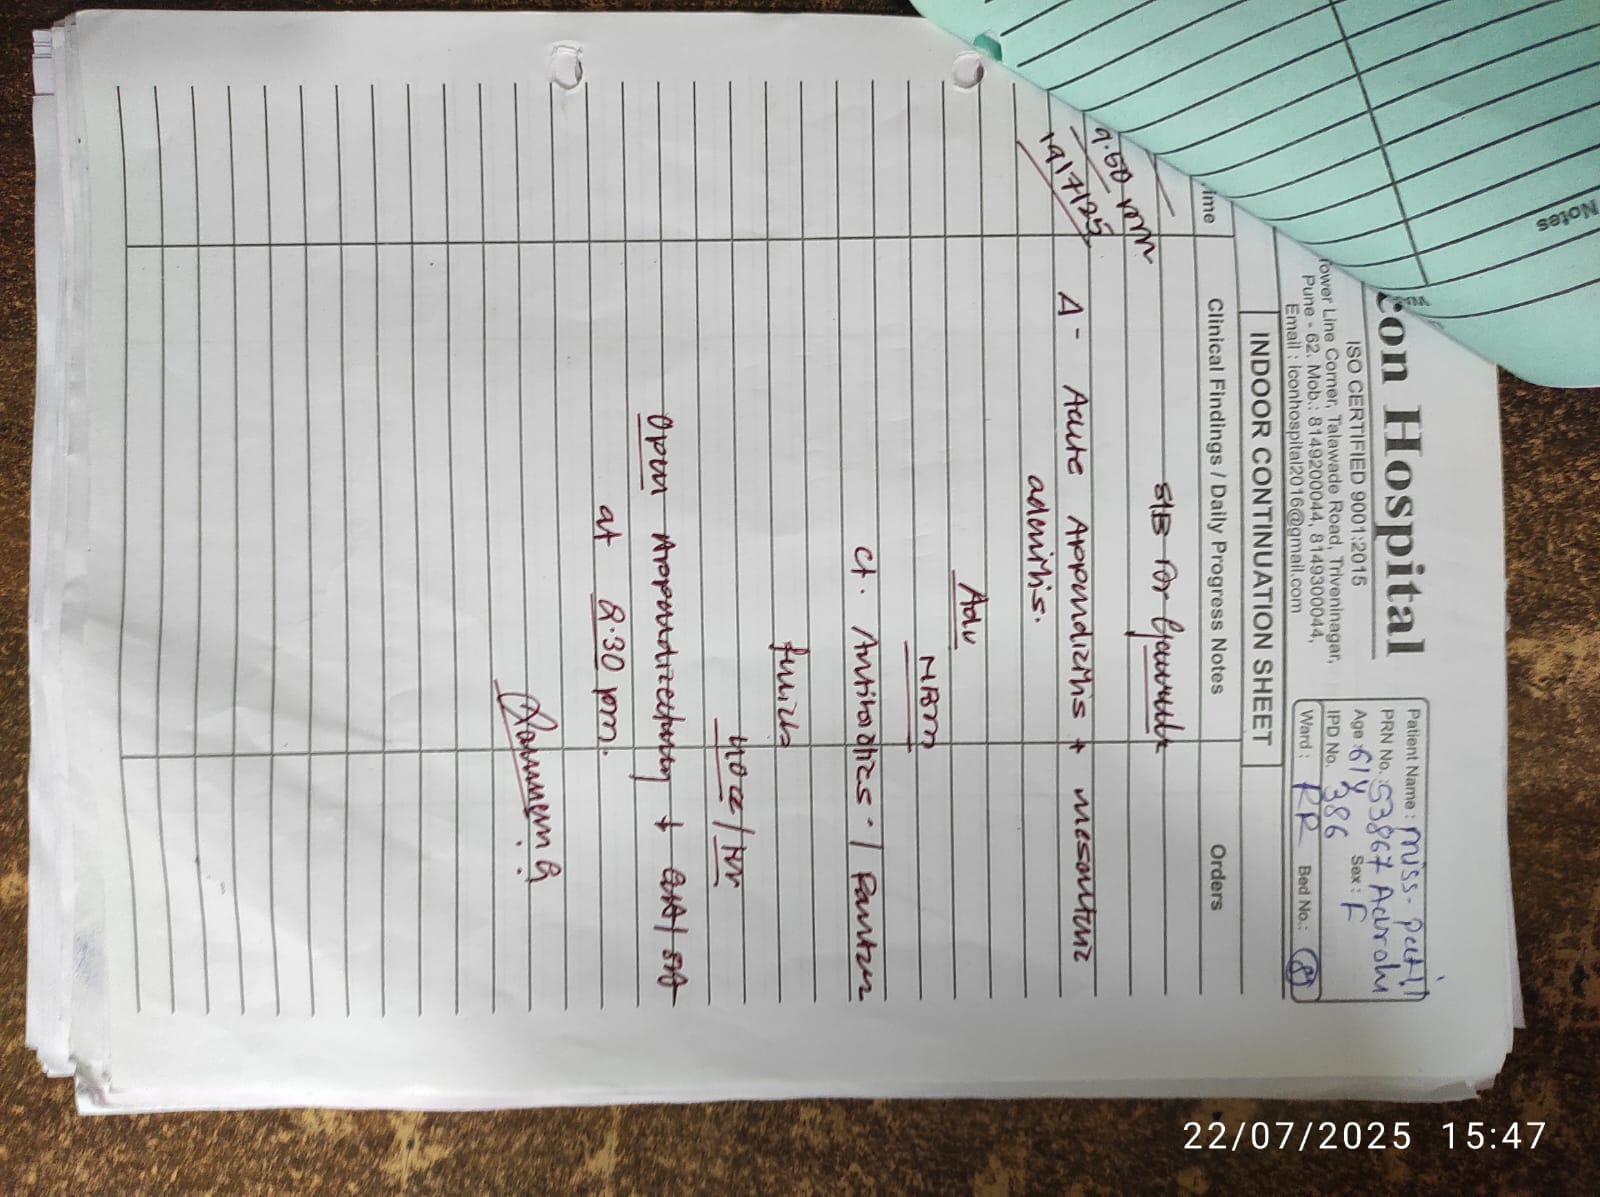 con Hospital
ISO CERTIFIED 9001:2015
Tower Line Corner, Talawade Road, Triveninagar,
Pune - 62. Mob.: 8149200044, 8149300044,
Email : iconhospital2016@gmail.com
Patient Name : Miss. Patil
PRN No. : 53867 Aarohi
Age : 6/Y Sex : F
IPD No. 386
Ward : RR Bed No.: 8
INDOOR CONTINUATION SHEET
ime Clinical Findings / Daily Progress Notes Orders
S/B Dr
9.50 pm
19/7/25 A - Acute Appendizitis + mesenteriz
adenitis.
Adv
NBM
ct. Antibiotics - / Pantoz
40cc/hr
Open Appendizectomy ↓ GA/SA
at 2.30 pm.
Notes
22/07/2025 15:47